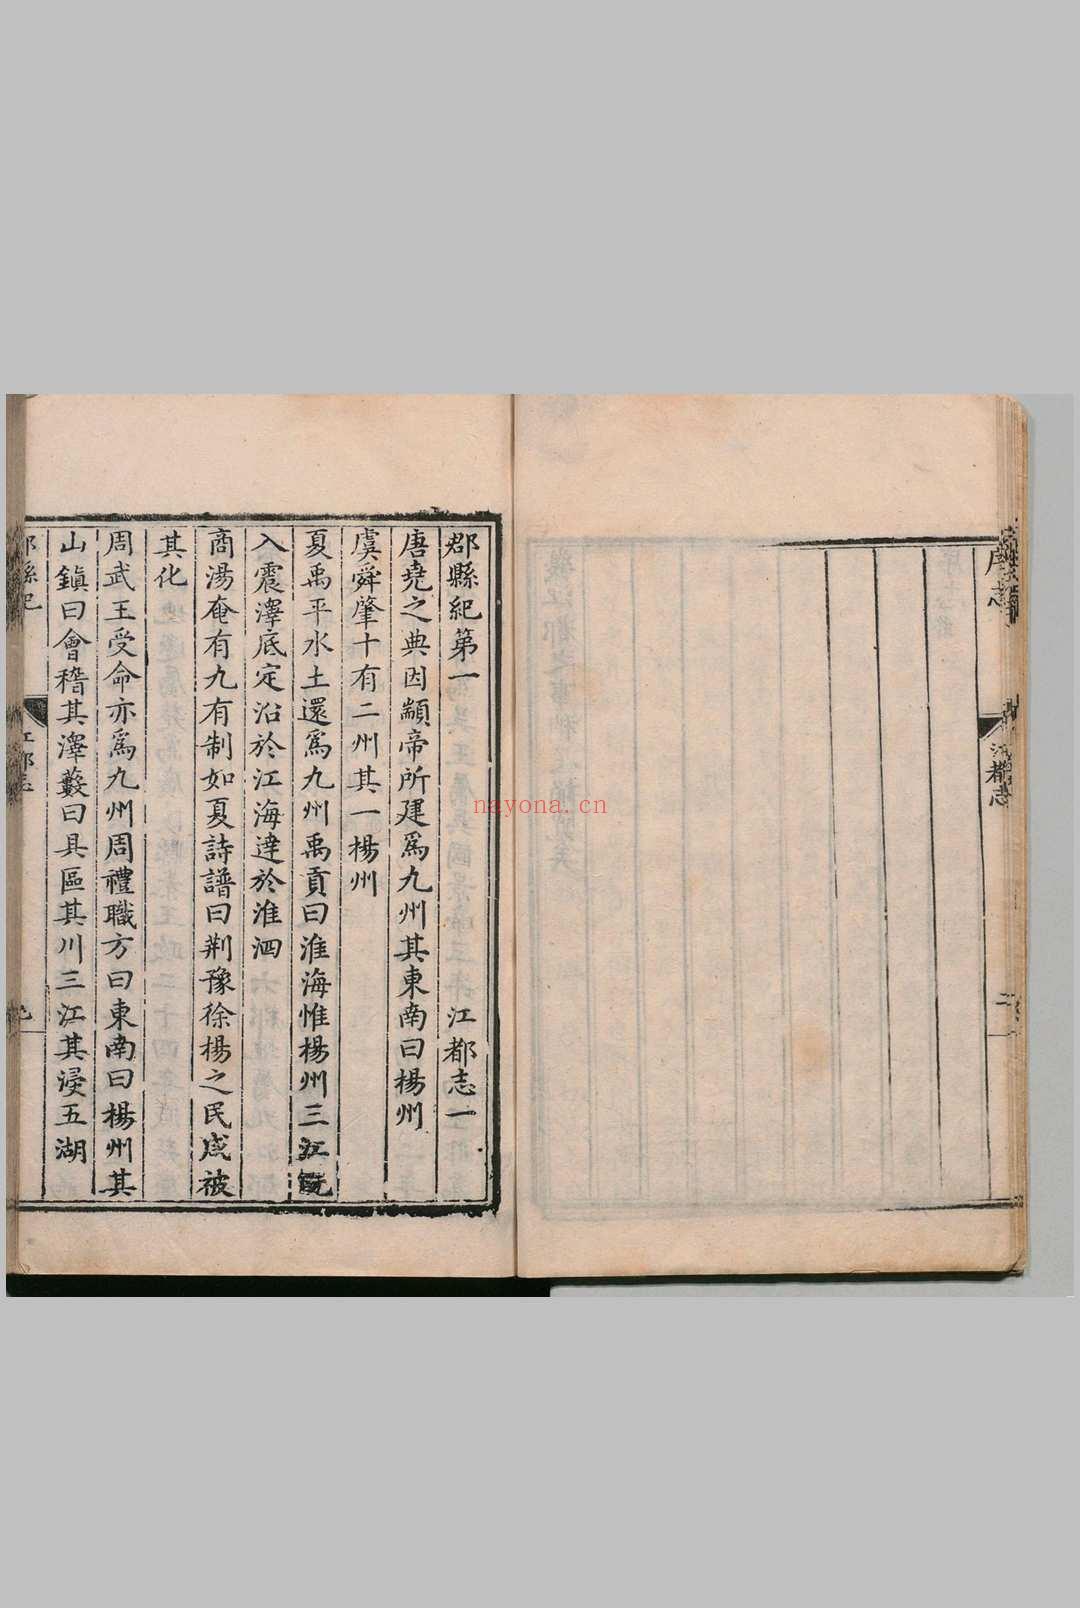 序志
江都志
二
郡縣紀第一 江都志一
唐堯之典因顓帝所建爲九州其東南曰楊州
虞舜肇十有二州其一楊州
夏禹平水土還爲九州禹貢曰淮海惟楊州三江既
入震澤底定沿於江海達於淮泗
商湯奄有九有制如夏詩譜曰荆豫徐楊之民咸被
其化
周武王受命亦爲九州周禮職方曰東南曰楊州其
山鎭曰會稽其澤藪曰具區其川三江其浸五湖
郡縣紀
江都志
nayona.cn